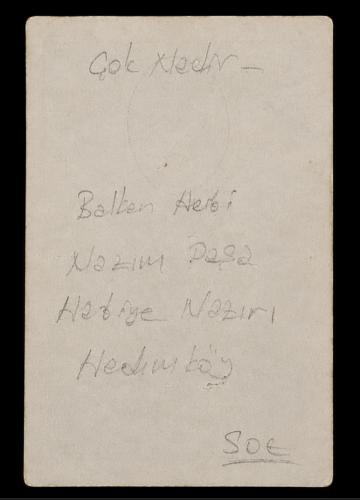 Çok Nadir -
Balkan Harbi
Nazım Paşa
Harbiye Nazırı
Hadımköy
SOE